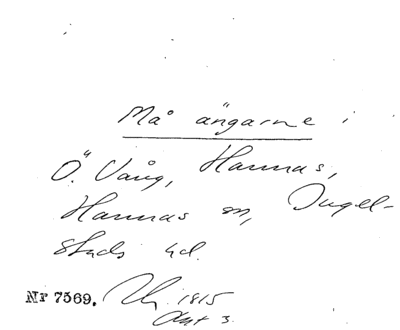 Må ängarne i
Ö. Vång, Hannas,
Hannas sn, Ingel-
stads hd.
Nr 7569. 1815
Akt 3.